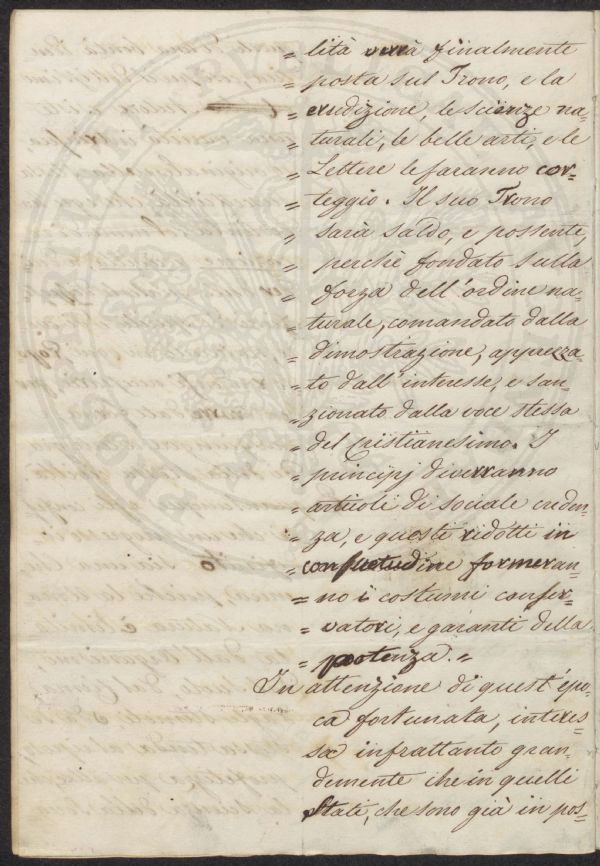 = lità verrà finalmente
= posta sul Trono, e la
= erudizione, le scienze na=
= turali, le belle arti, e le
= Lettere le faranno cor=
= teggio. Il suo Trono
= sarà saldo, e possente,
= perchè fondato sulla
= forza dell'ordine na=
= turale, comandato dalla
= dimostrazione, apprezza=
= to dall'interesse, e san=
= zionato dalla voce stessa
= del Cristianesimo. I
= principj diverranno
= articoli di sociale creden=
= za, e questi ridotti in
= consuetudine formeran=
= no i costumi conser=
= vatori, e garanti della
= potenza. =
In attenzione di quest'épo=
ca fortunata, interes=
sa infrattanto gran=
demente che in quelli
Stati, che sono già in pos=